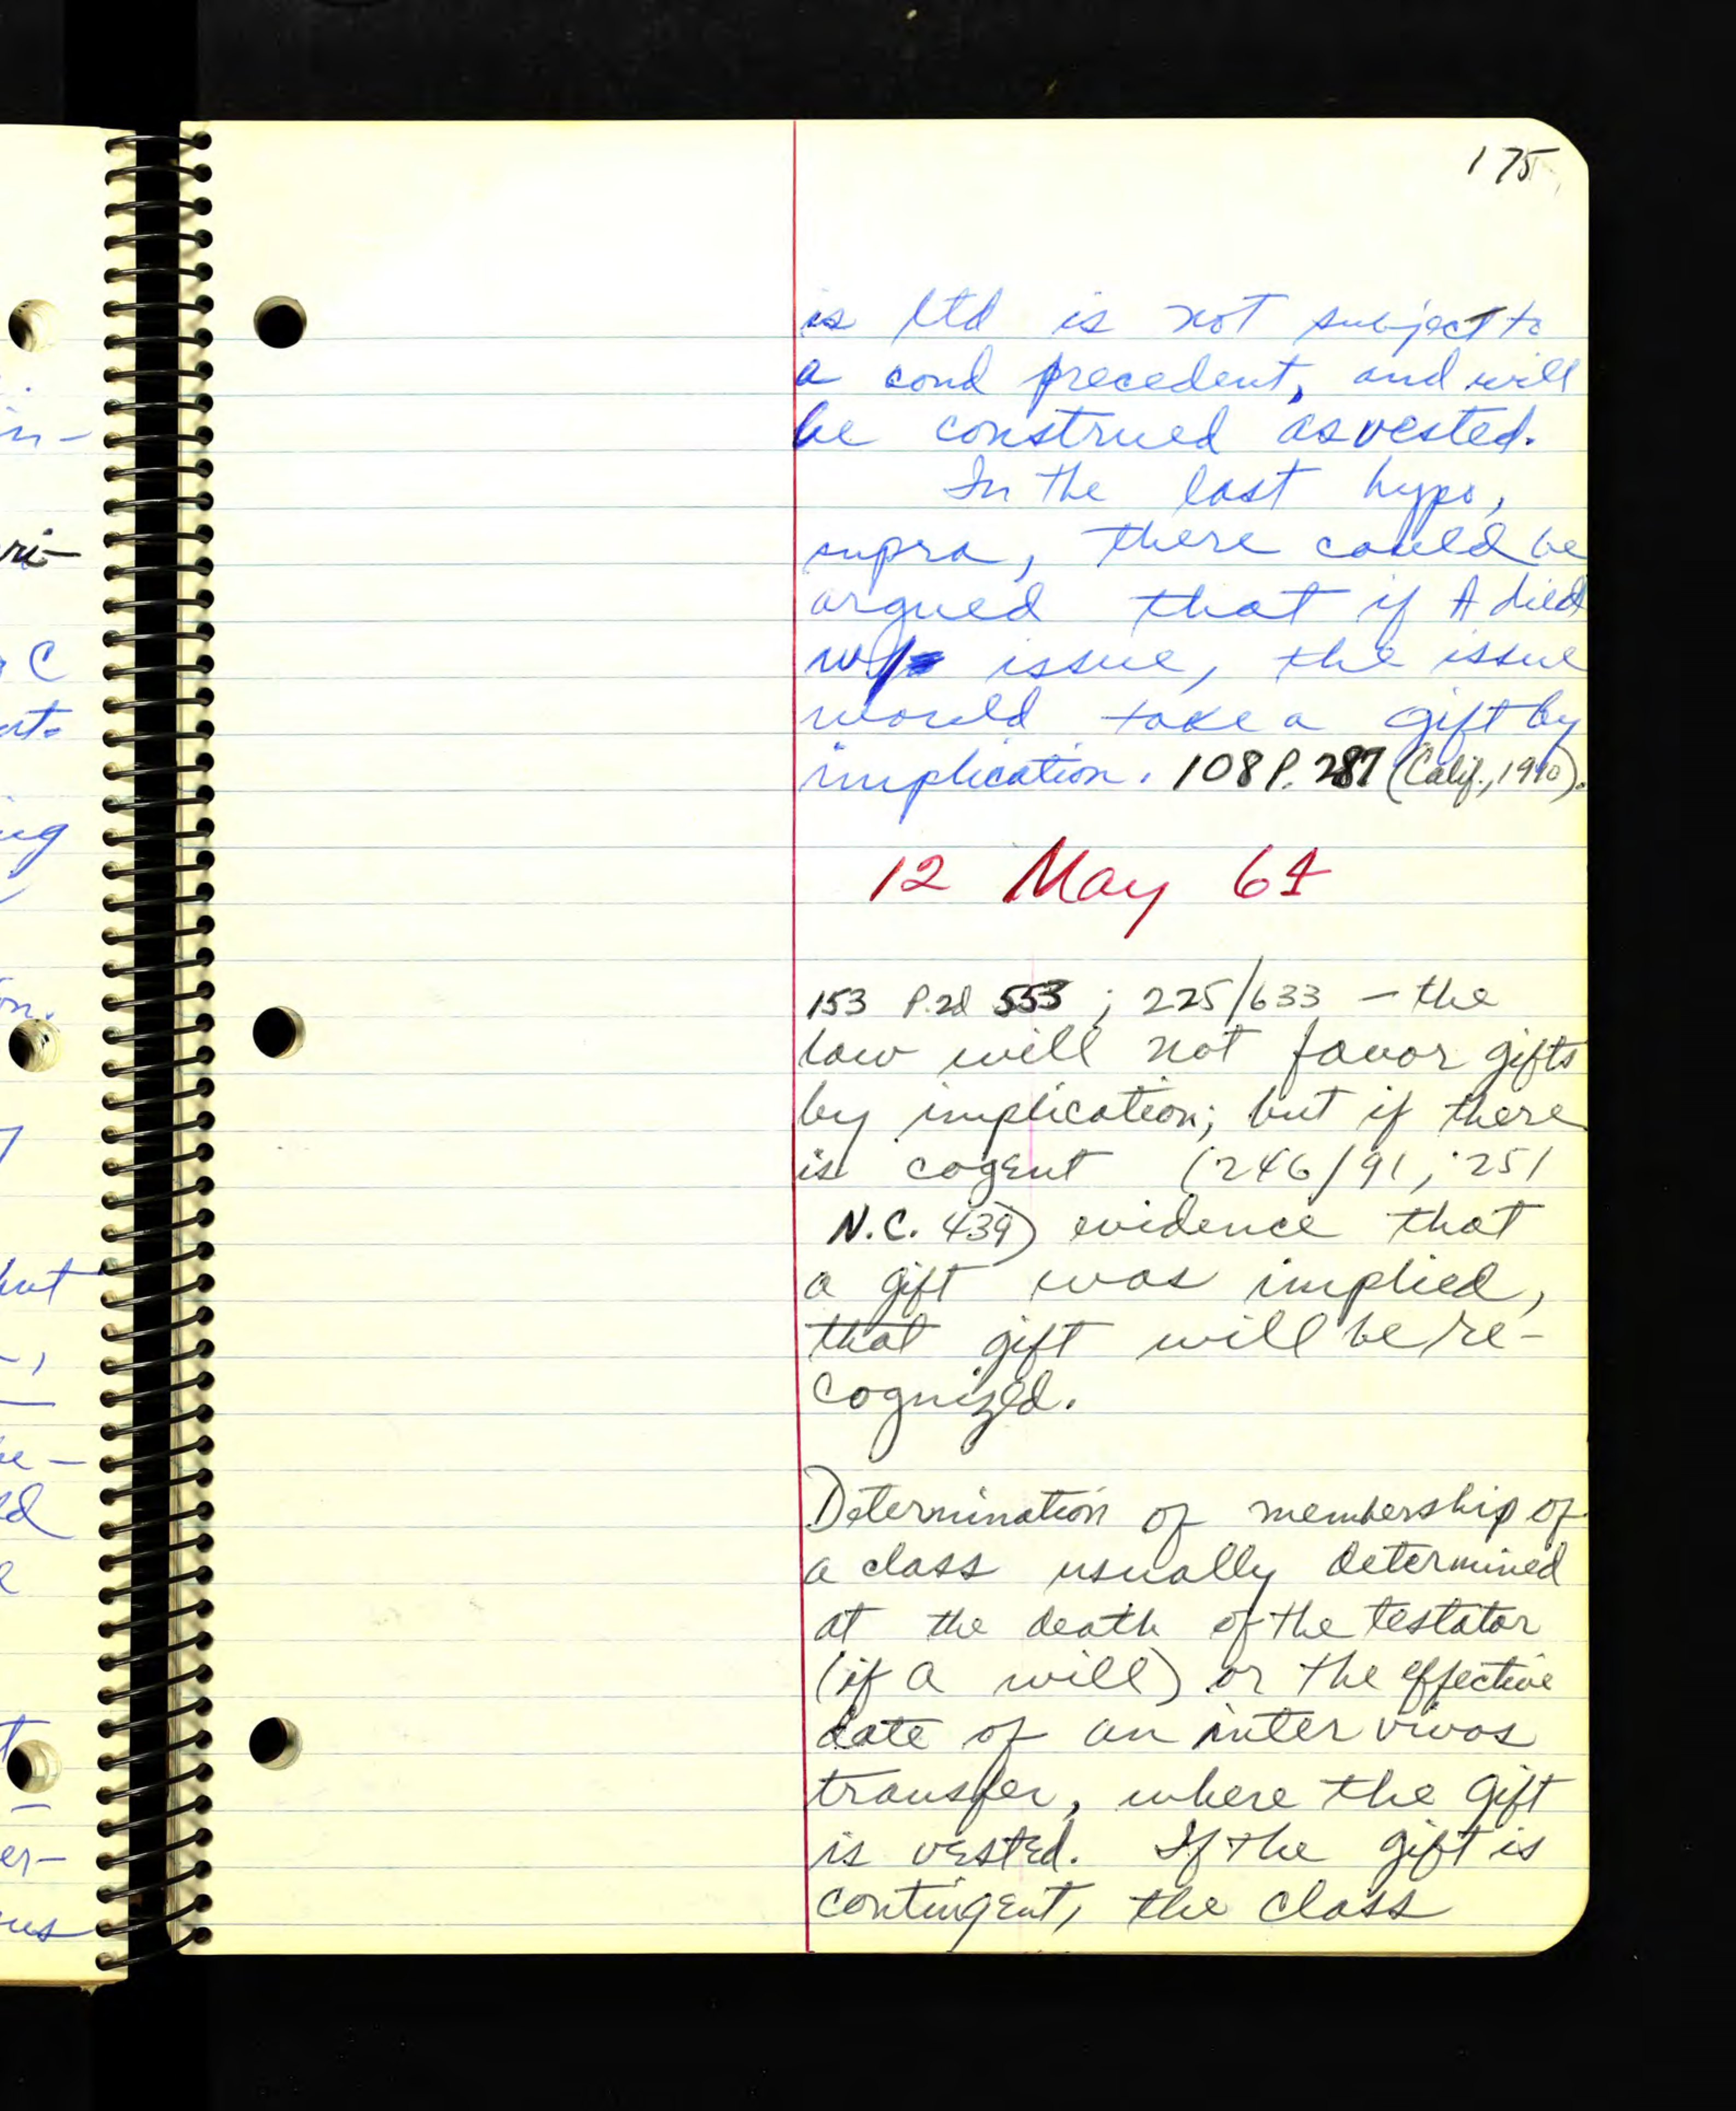 175
is ltd is not subject to
a cond precedent, and will
be construed as vested.
In the last hypo,
supra, there could be
argued that if A died
w/ issue, the issue
would take a gift by
implication. 108 P. 287 (Calif., 1910).
12 May 64
153 P.2d 553; 225/633 — the
law will not favor gifts
by implication; but if there
is cogent (246/91; 251
N.C. 439) evidence that
a gift was implied,
that gift will be re-
cognized.
Determination of membership of
a class usually determined
at the death of the testator
(if a will) or the effective
date of an inter vivos
transfer, where the gift
is vested. If the gift is
contingent, the class